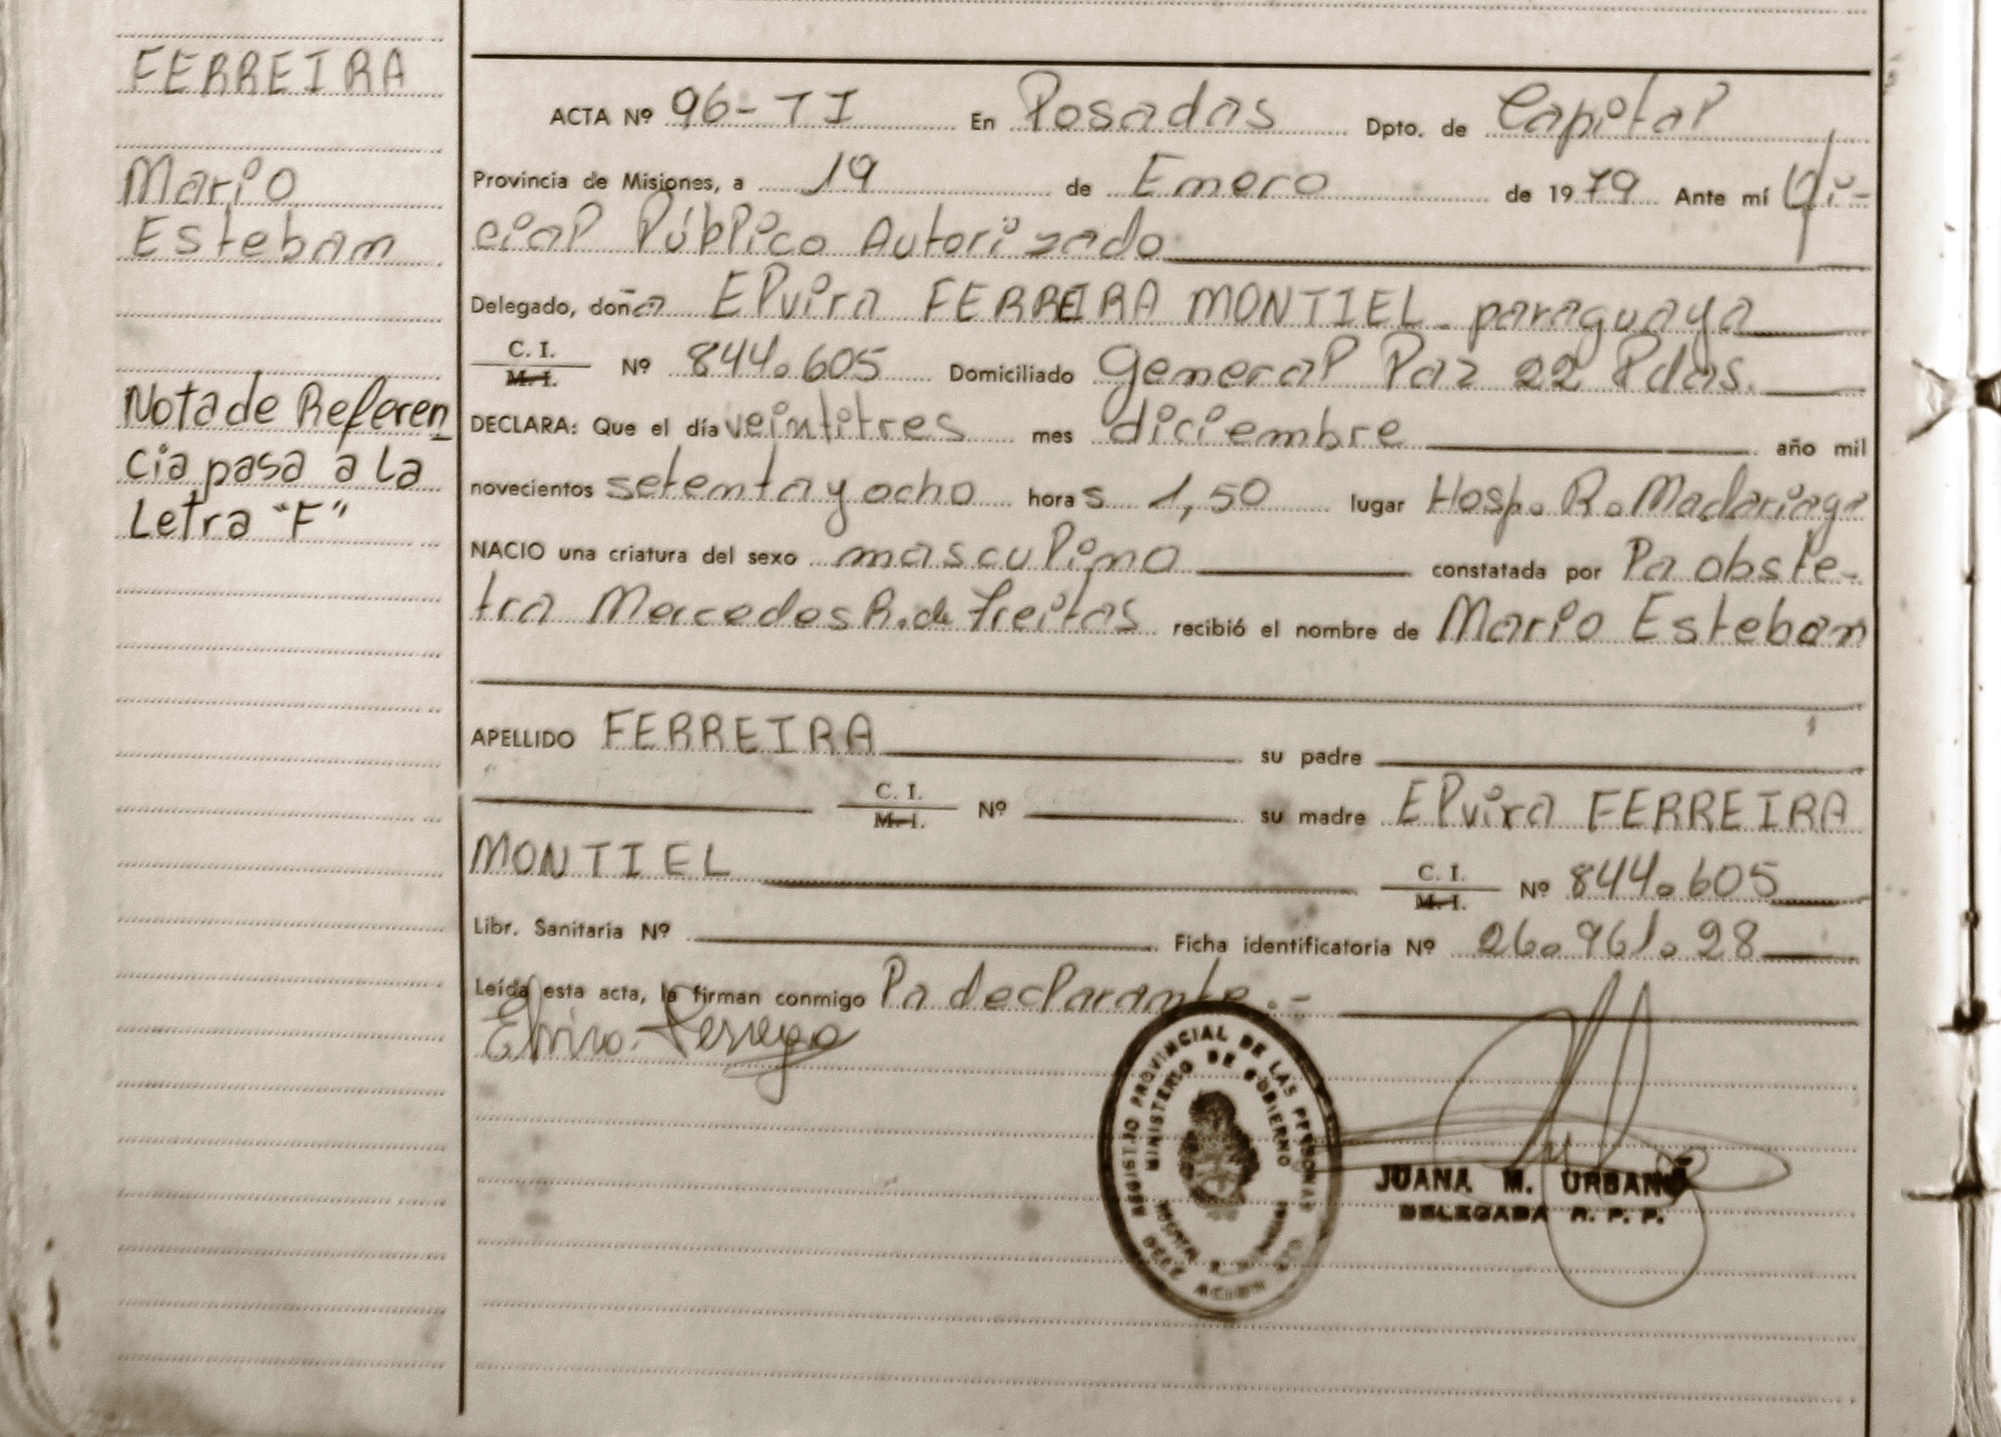 FERREIRA
Mario
Esteban
Nota de Referen
cia pasa a la
Letra "F"
ACTA Nº 96-TI En Posadas Dpto. de Capital
Provincia de Misiones, a 19 de Enero de 1979 Ante mí Ofi-
cial Público Autorizado
Delegado, doña Elvira FERREIRA MONTIEL paraguaya
C. I.
M. I. Nº 844.605 Domiciliado General Paz 22 Pdas.
DECLARA: Que el día veintitres mes diciembre año mil
novecientos setenta y ocho horas 1,50 lugar Hosp. R. Madariaga
NACIO una criatura del sexo masculino constatada por la obste-
tra Mercedes R. de Freitas recibió el nombre de Mario Esteban
APELLIDO FERREIRA su padre
C. I.
M. I. Nº su madre Elvira FERREIRA
MONTIEL C. I.
M. I. Nº 844.605
Libr. Sanitaria Nº Ficha identificatoria Nº 26.961.28
Leída esta acta, la firman conmigo la declarante.-
REGISTRO PROVINCIAL DE LAS PERSONAS
MINISTERIO DE GOBIERNO
JUANA M. URBANO
DELEGADA R. P. P.